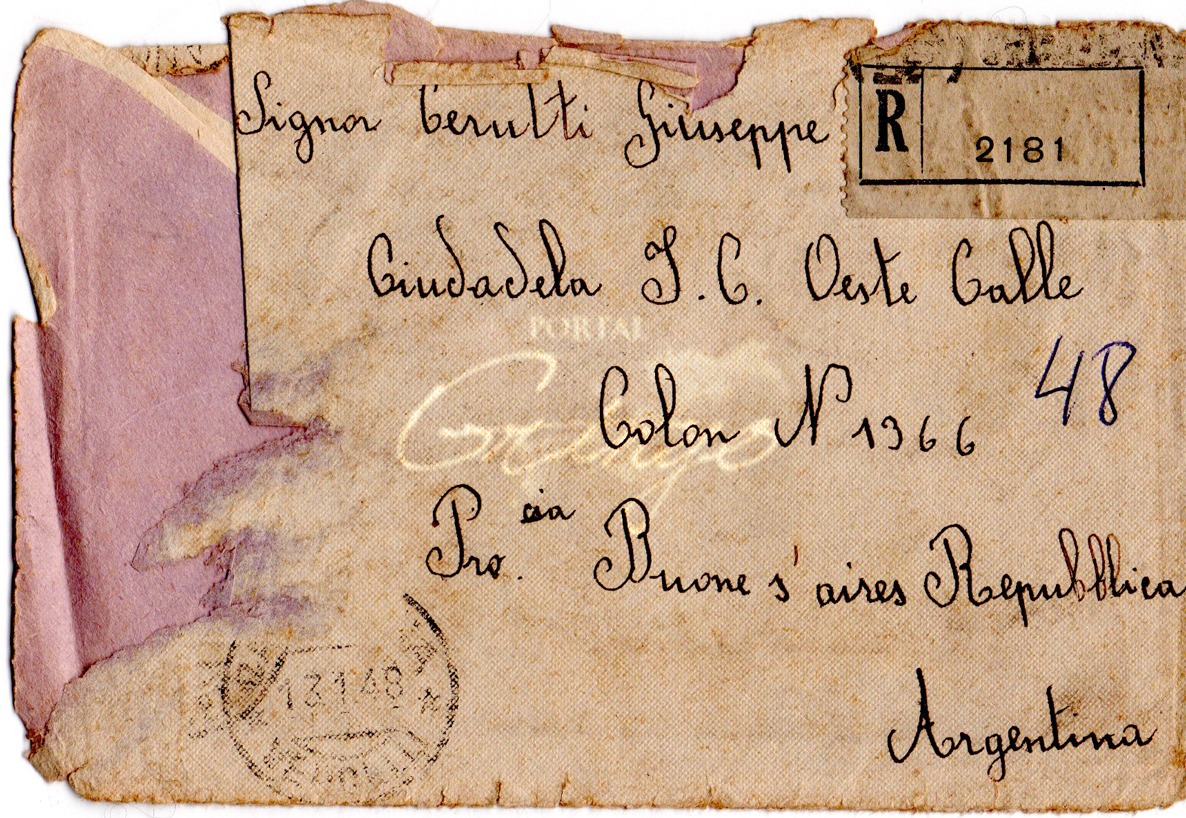 Signor Cerutti Giuseppe
R 2181
Ciudadela F. C. Oeste Calle
PORTAL
48
Colon N 1366
Pro.cia Buone s'aires Repubblica
13.1.48
Argentina